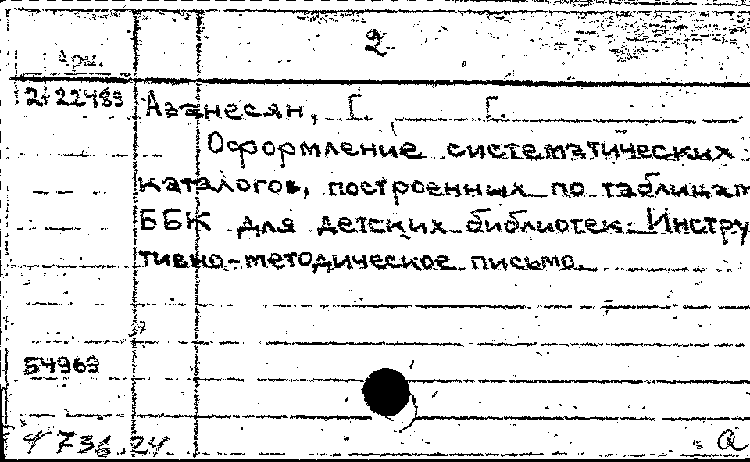 2
Арм.
2i 22483 Азанесян, Г. Г.
Оформление систематических
каталогов, построенных по таблицам
ББК для детских библиотек. Инстру
тивно-методическое письмо.
54963
4736.24